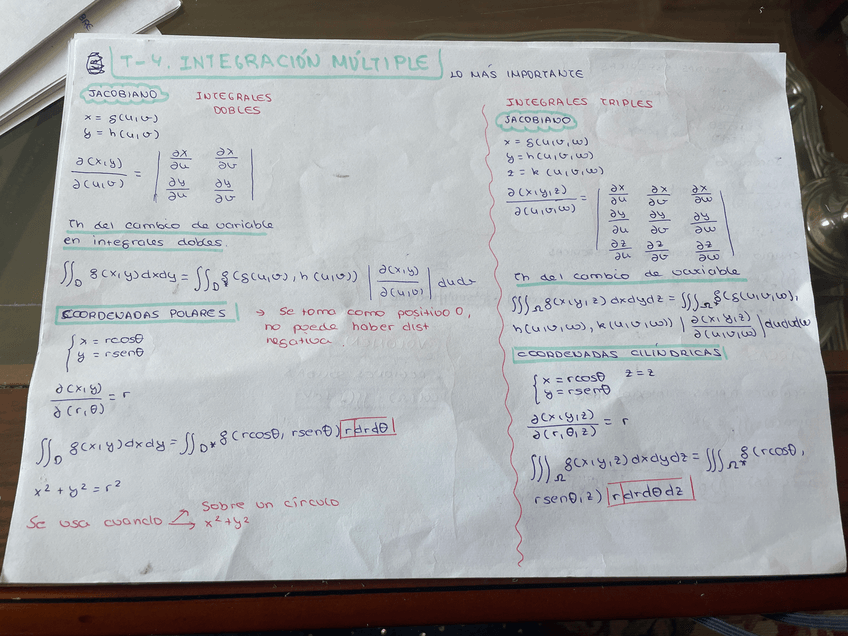 T-4. INTEGRACIÓN MÚLTIPLE
LO MÁS IMPORTANTE
JACOBIANO
INTEGRALES
DOBLES
x = g(u,v)
y = h(u,v)
∂(x,y)/∂(u,v) = | ∂x/∂u ∂x/∂v |
| ∂y/∂u ∂y/∂v |
Th del cambio de variable
en integrales dobles.
∬_D f(x,y)dxdy = ∬_D* f(g(u,v), h(u,v)) |∂(x,y)/∂(u,v)| dudv
COORDENADAS POLARES
→ Se toma como positivo 0,
no puede haber dist
negativa.
{ x = rcosθ
{ y = rsenθ
∂(x,y)/∂(r,θ) = r
∬_D f(x,y)dxdy = ∬_D* f(rcosθ, rsenθ) r drdθ
x² + y² = r²
Se usa cuando ↗ Sobre un círculo
→ x²+y²
INTEGRALES TRIPLES
JACOBIANO
x = g(u,v,w)
y = h(u,v,w)
z = k(u,v,w)
∂(x,y,z)/∂(u,v,w) = | ∂x/∂u ∂x/∂v ∂x/∂w |
| ∂y/∂u ∂y/∂v ∂y/∂w |
| ∂z/∂u ∂z/∂v ∂z/∂w |
Th del cambio de variable
∭_Ω f(x,y,z) dxdydz = ∭_Ω* f(g(u,v,w),
h(u,v,w), k(u,v,w)) |∂(x,y,z)/∂(u,v,w)| dudvdw
COORDENADAS CILÍNDRICAS
{ x = rcosθ z = z
{ y = rsenθ
∂(x,y,z)/∂(r,θ,z) = r
∭_Ω f(x,y,z)dxdydz = ∭_Ω* f(rcosθ,
rsenθ, z) r drdθdz